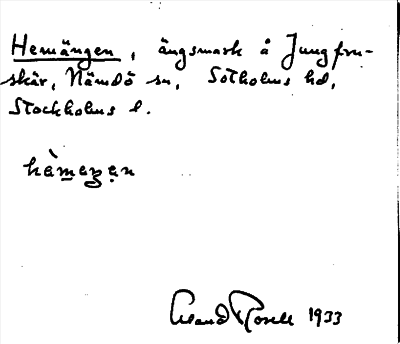 Hemängen, ängsmark å Jungfru-
skär, Nämdö sn, Sotholms hd,
Stockholms l.
hèmeŋen
Erland Rosell 1933